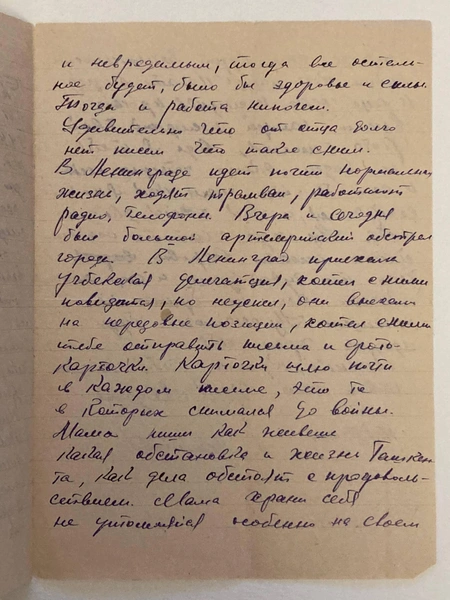 и невредимым, тогда все осталь-
ное будет, было бы здоровье и силы.
Тогда и работа нипочем.
Удивительно что от отца долго
нет писем что такое с ним.
В Ленинграде идет почти нормальная
жизнь, ходят трамваи, работают
радио, телефоны. Вчера и сегодня
был большой артилерийский обстрел
города. В Ленинград приехала
узбекская делегация, хотел с ними
повидаться, но не успел, они выехали
на передовые позиции, хотел с ними
тебе отправить письма и фото-
карточки. Карточки шлю почти
в каждом письме, это те
в которых снимался до войны.
Мама пиши как живешь
какая обстановка и жизнь Ташкен-
та, как дела обстоят с продоволь-
ствием. Мама храни себя
не утомляйся особенно на своем